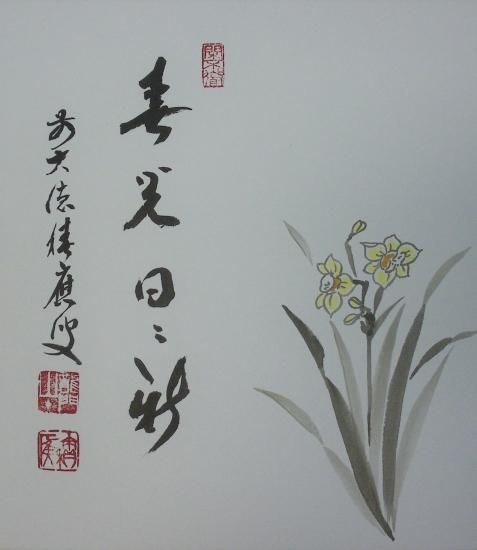 春光日〻新
前大徳積應叟